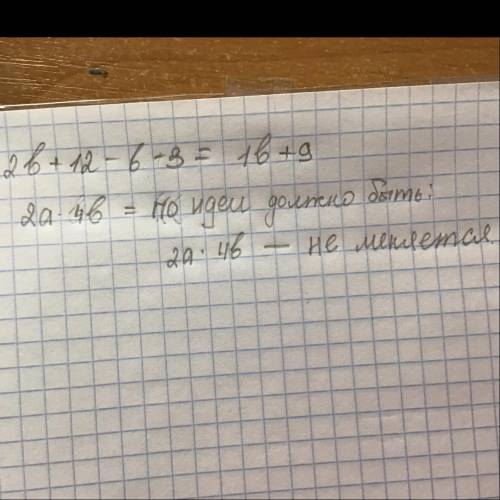 2b + 12 - b - 3 = 1b + 9
2a · 4b = По идеи должно быть:
2a · 4b — не меняется